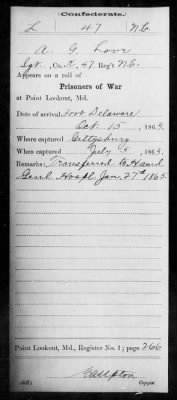 Confederate.
L 47 N.C.
A. G. Love
Sgt, Co. K, 47 Reg't N.C.
Appears on a roll of
Prisoners of War
at Point Lookout, Md.
Date of arrival, Fort Delaware
Oct 15, 1863.
Where captured Gettysburg
When captured July 5, 1863.
Remarks: Transferred to Hamd
Genl Hospl Jan. 27th 1865.
Point Lookout, Md., Register No. 1; page 266
Copyist.